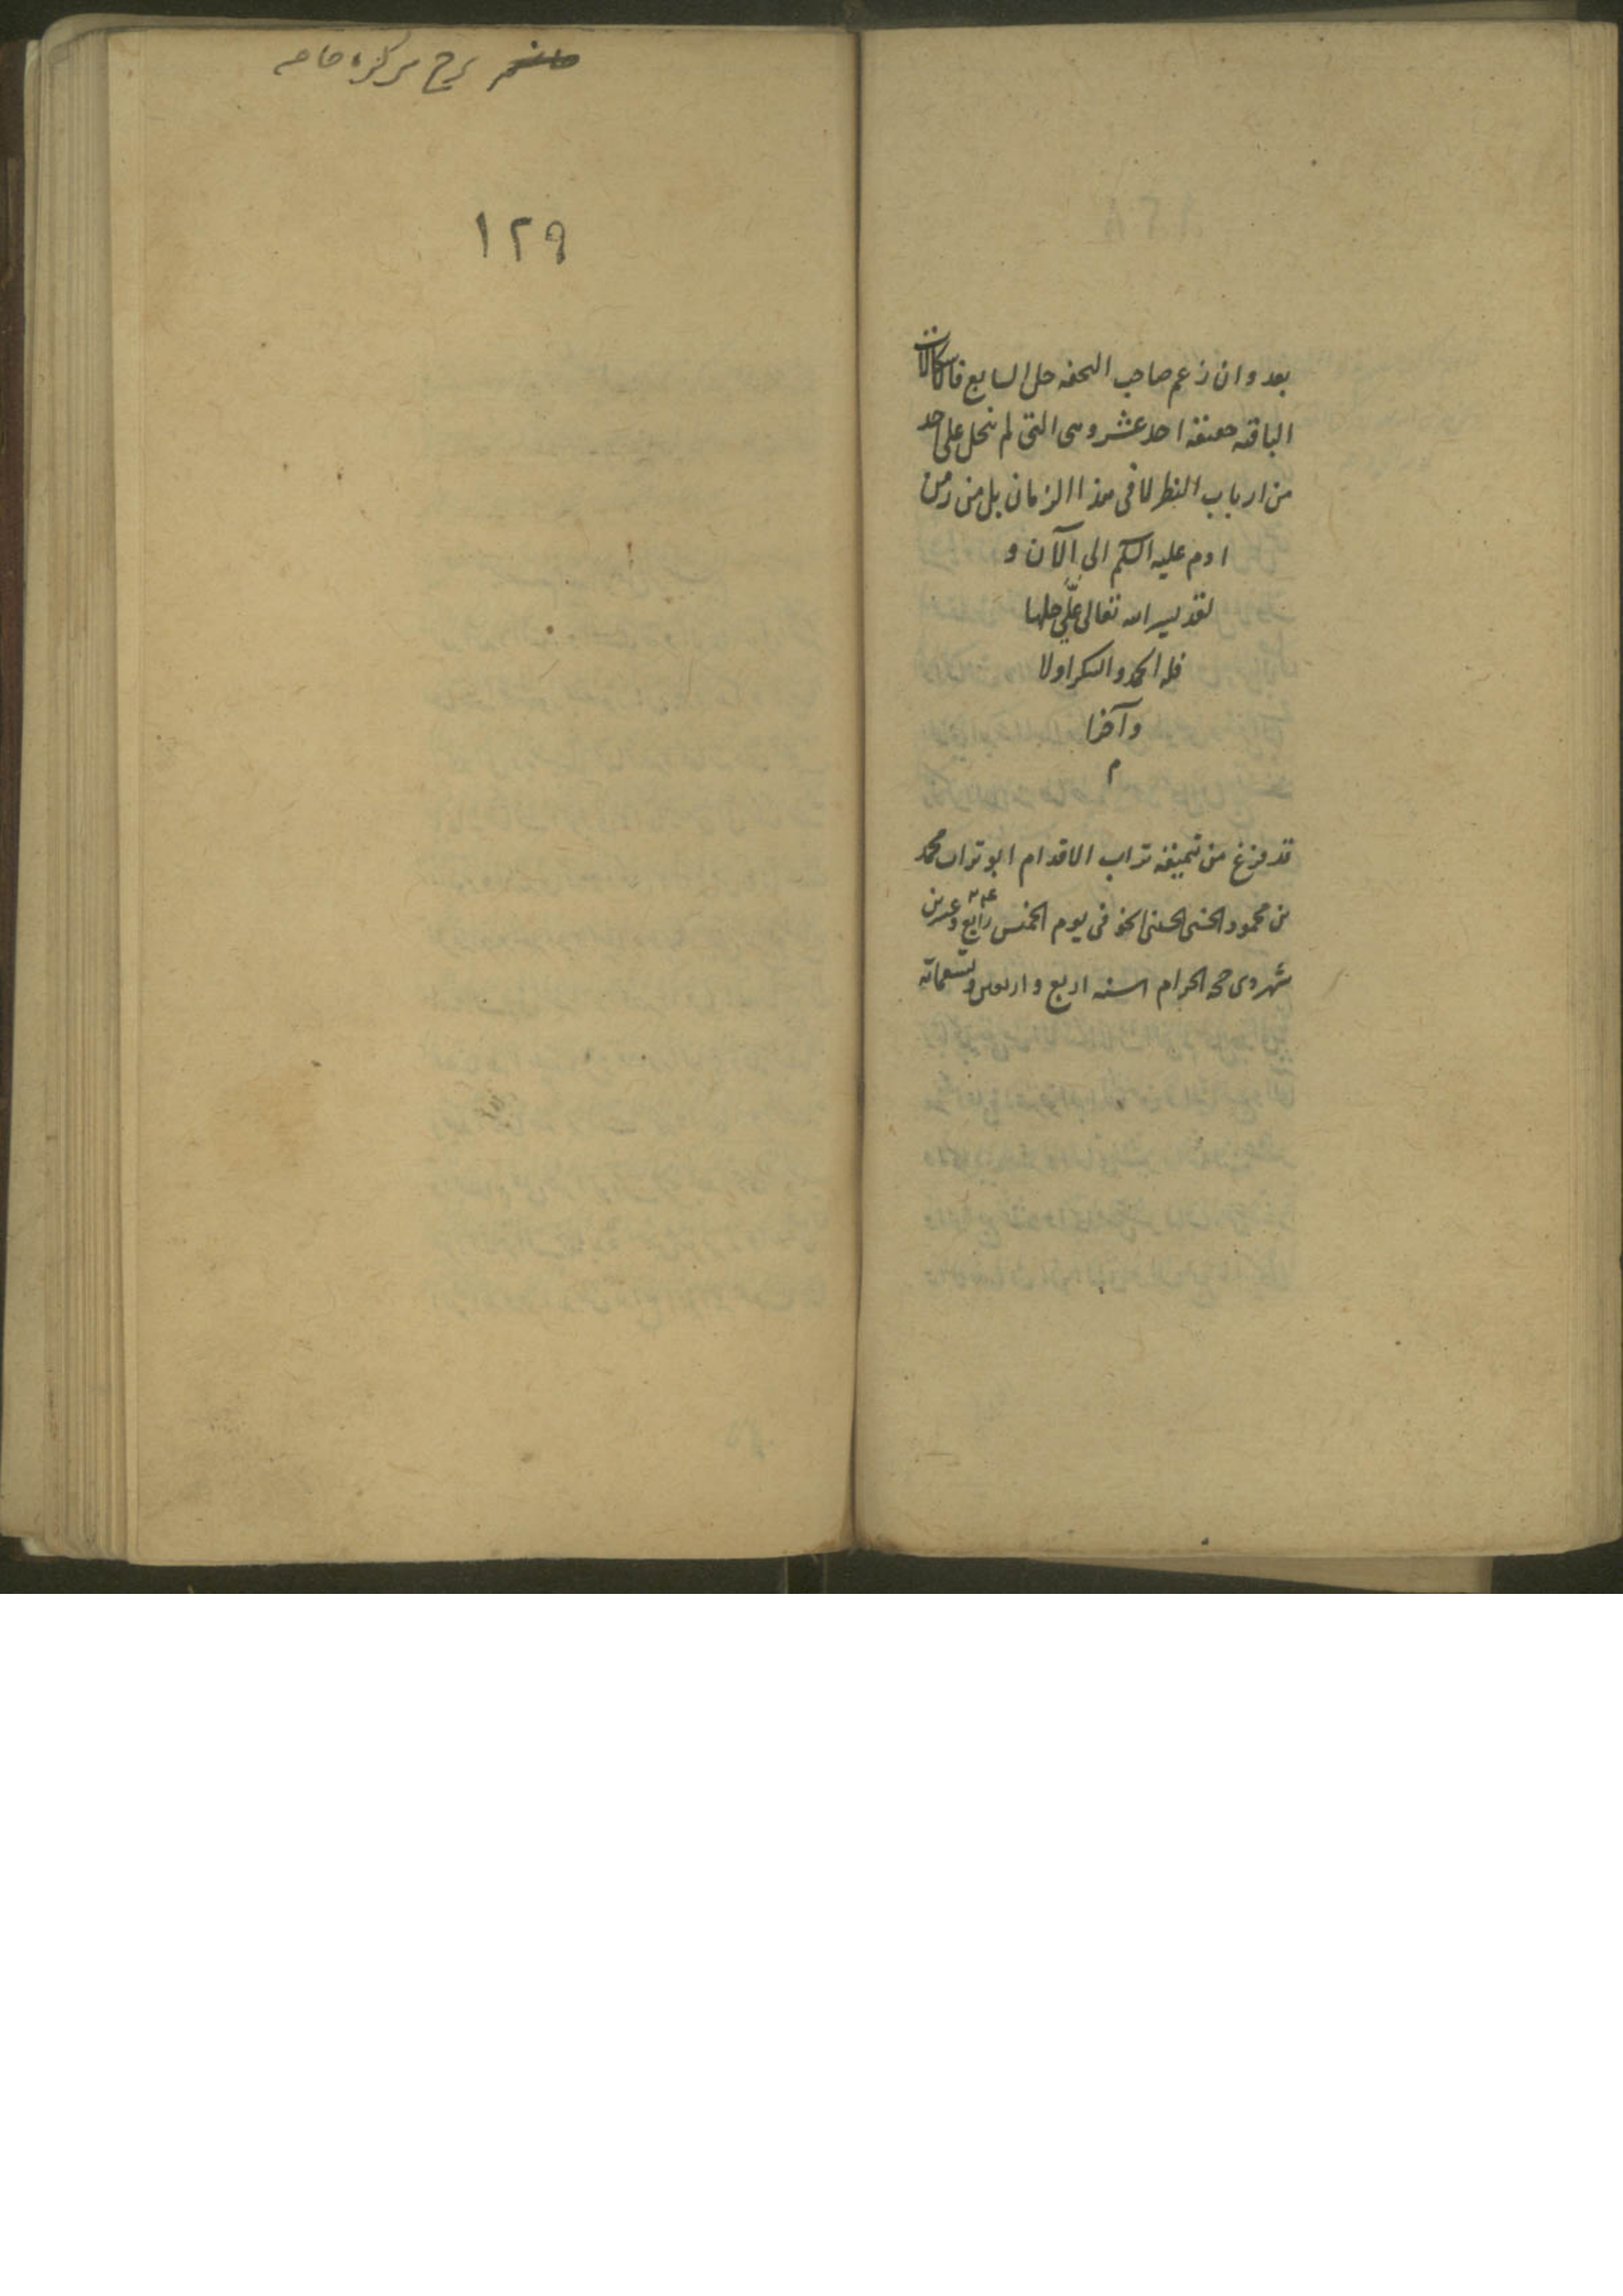 بعد وان زعم صاحب التحفه حل السابع فالاشكالات
الباقيه حقيقة احد عشر وهى التى لم ينحل على احد
من ارباب النظر لا فى هذا الزمان بل من زمن
ادم عليه السلم الى الآن و
لقد يسر الله تعالى علّى حلها
فله الحمد والشكر اولا
وآخرا
م
قد فرغ من تنميقه تراب الاقدام ابو تراب محمد
بن محمود الحسنى الحسينى فى يوم الخميس رابع وعشرين
شهر ذى حجه الحرام سنه اربع واربعين وتسعمائة
شرح تذكره خاصه
١٢٩